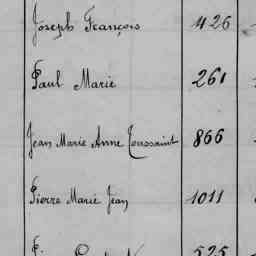 Joseph François 426
Paul Marie 261
Jean Marie Anne Toussaint 866
Pierre Marie Jean 1011
525